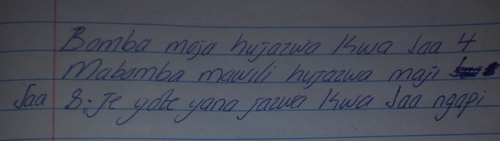 Bomba moja hujazwa kwa saa 4
Mabomba mawili hujazwa maji
Saa 8. Je yote yana jazwa kwa saa ngapi